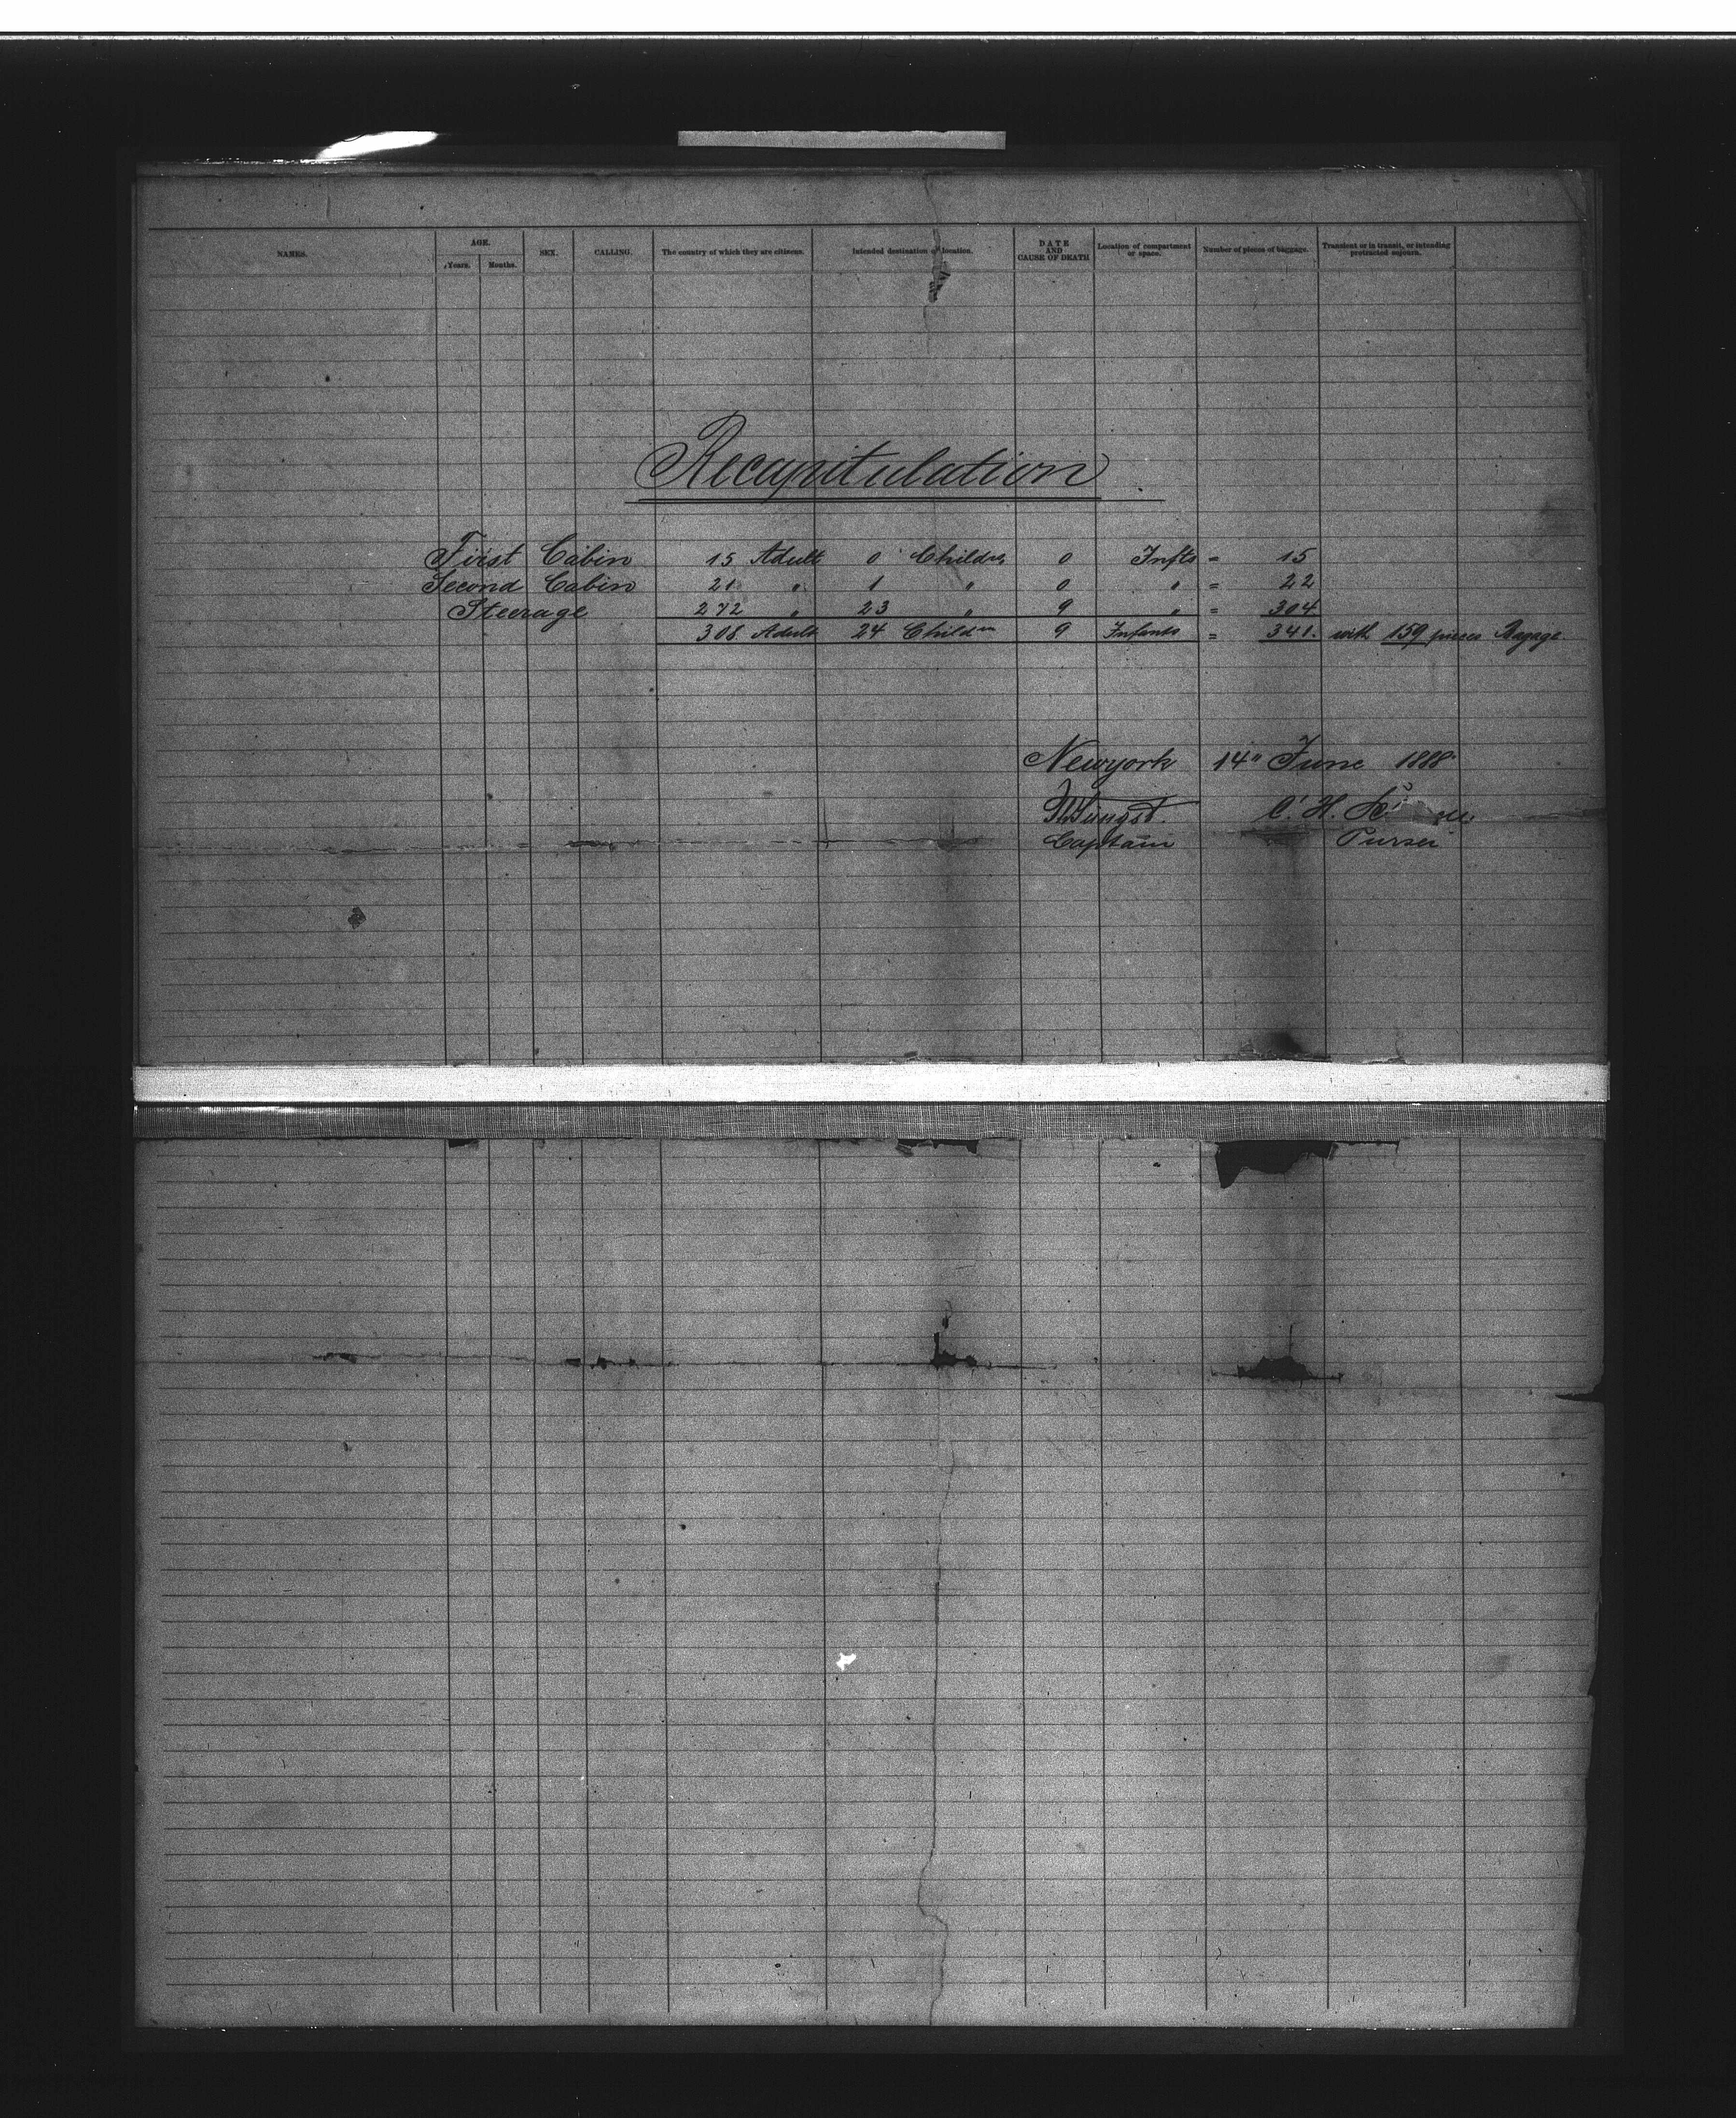 NAMES. AGE. SEX. CALLING. The country of which they are citizens. Intended destination or location. DATE AND CAUSE OF DEATH Location of compartment or space. Number of pieces of baggage. Transient or in transit, or intending protracted sojourn.
Years. Months.
Recapitulation
First Cabin 15 Adult 0 Childrn 0 Infts = 15
Second Cabin 21 " 1 " 0 " = 22
Steerage 272 " 23 " 9 " = 304
308 Adult 24 Childrn 9 Infants = 341. with 159 pieces Bagage
Newyork 14" June 1888
C. H.
Captain Purser